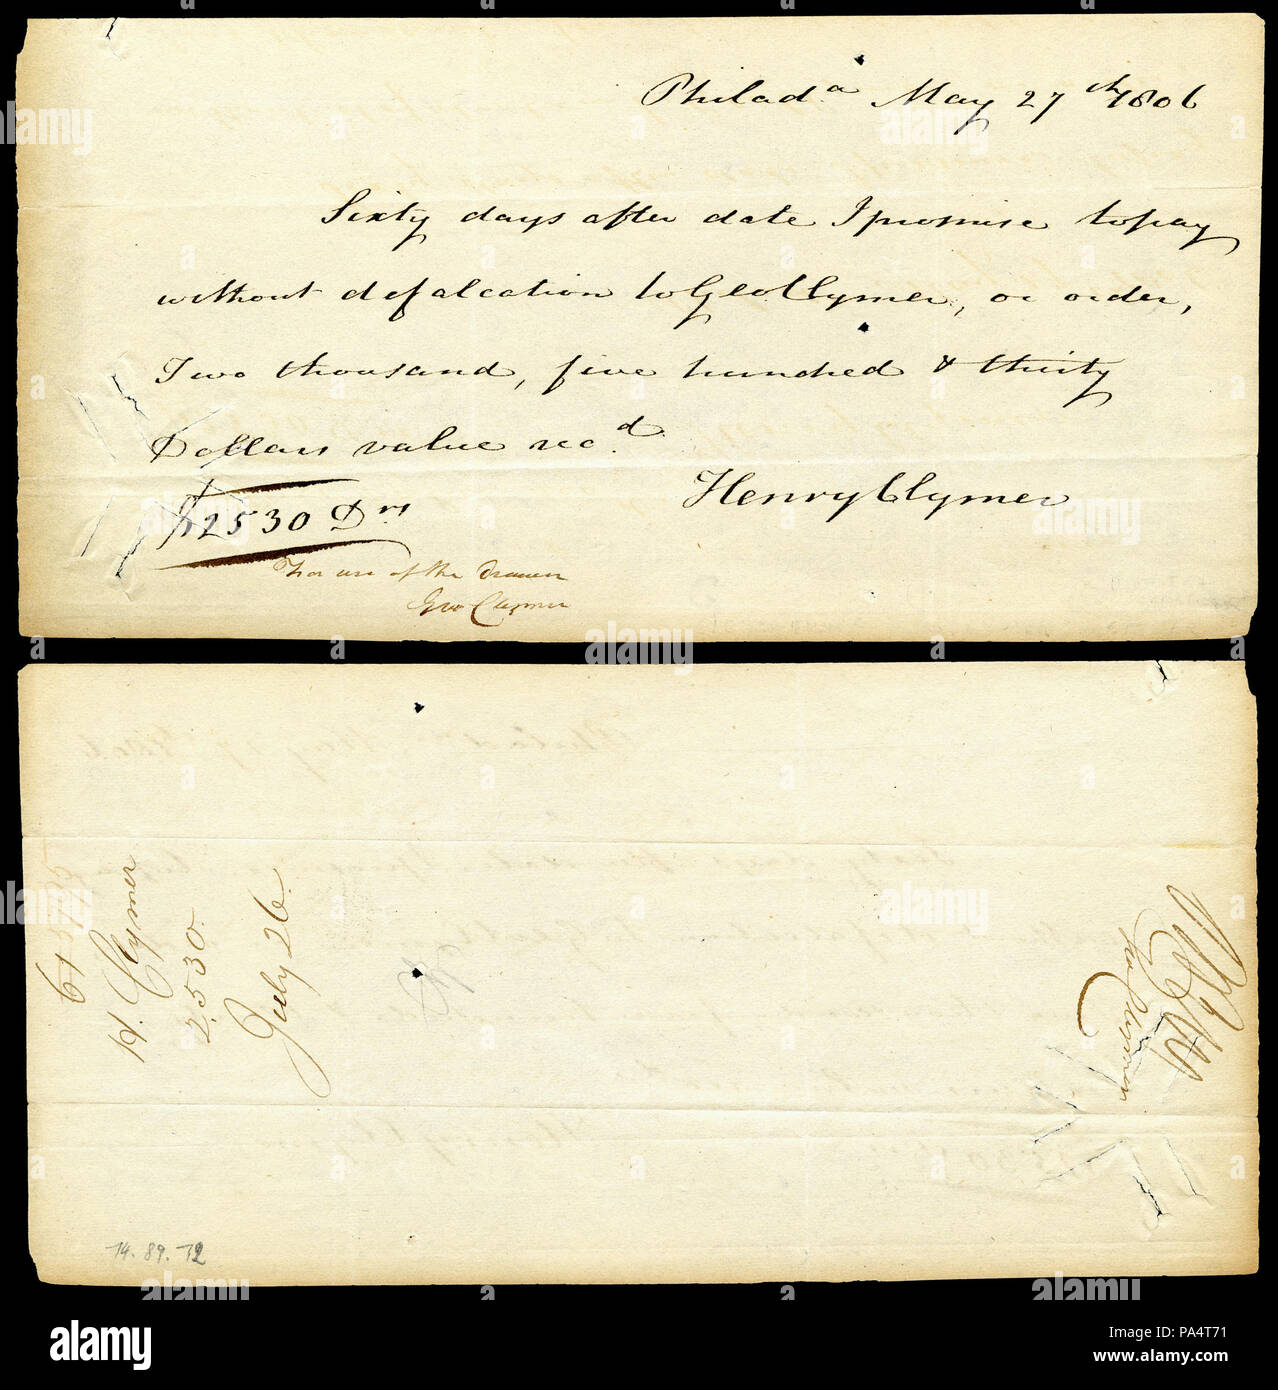 Philad.ᵃ May 27ᵗʰ 1806
Sixty days after date I promise to pay
without defalcation to Geo Clymer, or order,
Two thousand, five hundred & thirty
Dollars value rec.ᵈ
Henry Clymer
$2530 Dʳˢ
For use of the Drawer
Geo Clymer
H. Clymer
2530.
July 26.
Geo Clymer
74. 89. 72
alamy
Image ID: PA4T71
www.alamy.com